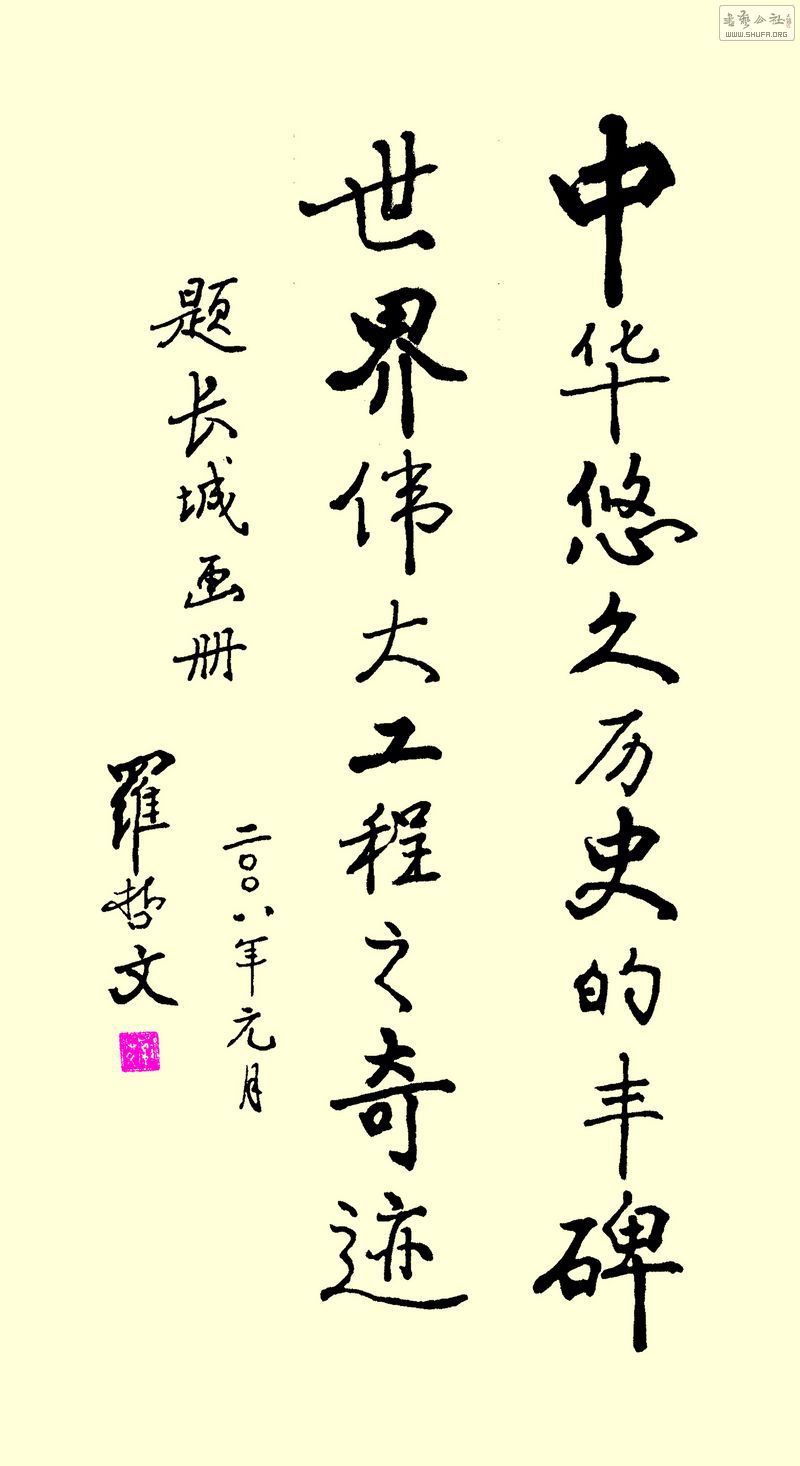 中华悠久历史的丰碑
世界伟大工程之奇迹
题长城画册
二〇〇八年元月
羅哲文
书艺公社
WWW.SHUFA.ORG